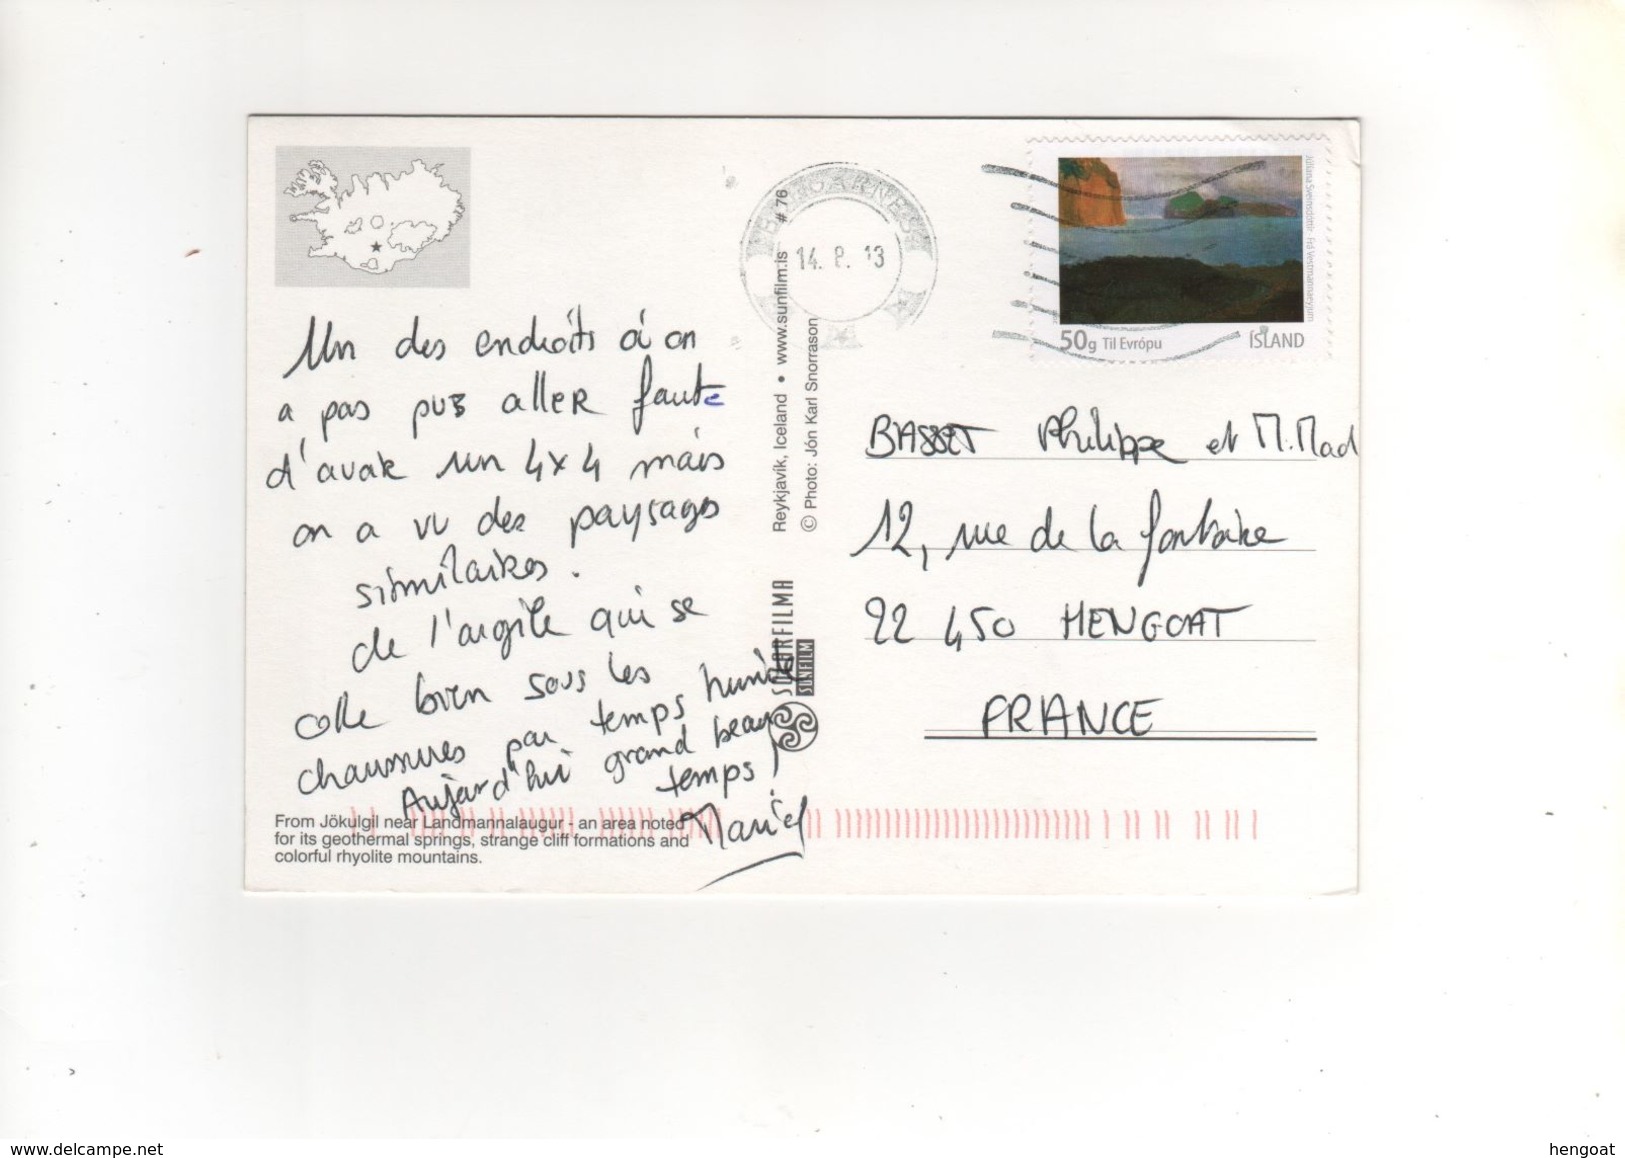 Un des endroits où on
a pas pus aller faute
d'avoir un 4x4 mais
on a vu des paysages
similaires.
de l'argile qui se
colle bien sous les
chaussures par temps humide
Aujourd'hui grand beau
temps !
From Jökulgil near Landmannalaugur - an area noted
for its geothermal springs, strange cliff formations and
colorful rhyolite mountains.
Reykjavík, Iceland • www.sunfilm.is # 76
© Photo: Jón Karl Snorrason
SÓLARFILMA
SUNFILM
BORGARNES
14. 8. 13
Júlíana Sveinsdóttir Frá Vestmannaeyjum
50g Til Evrópu ÍSLAND
BASSET Philippe et M.Mad
12, rue de la fontaine
22 450 HENGOAT
FRANCE
delcampe.net
hengoat